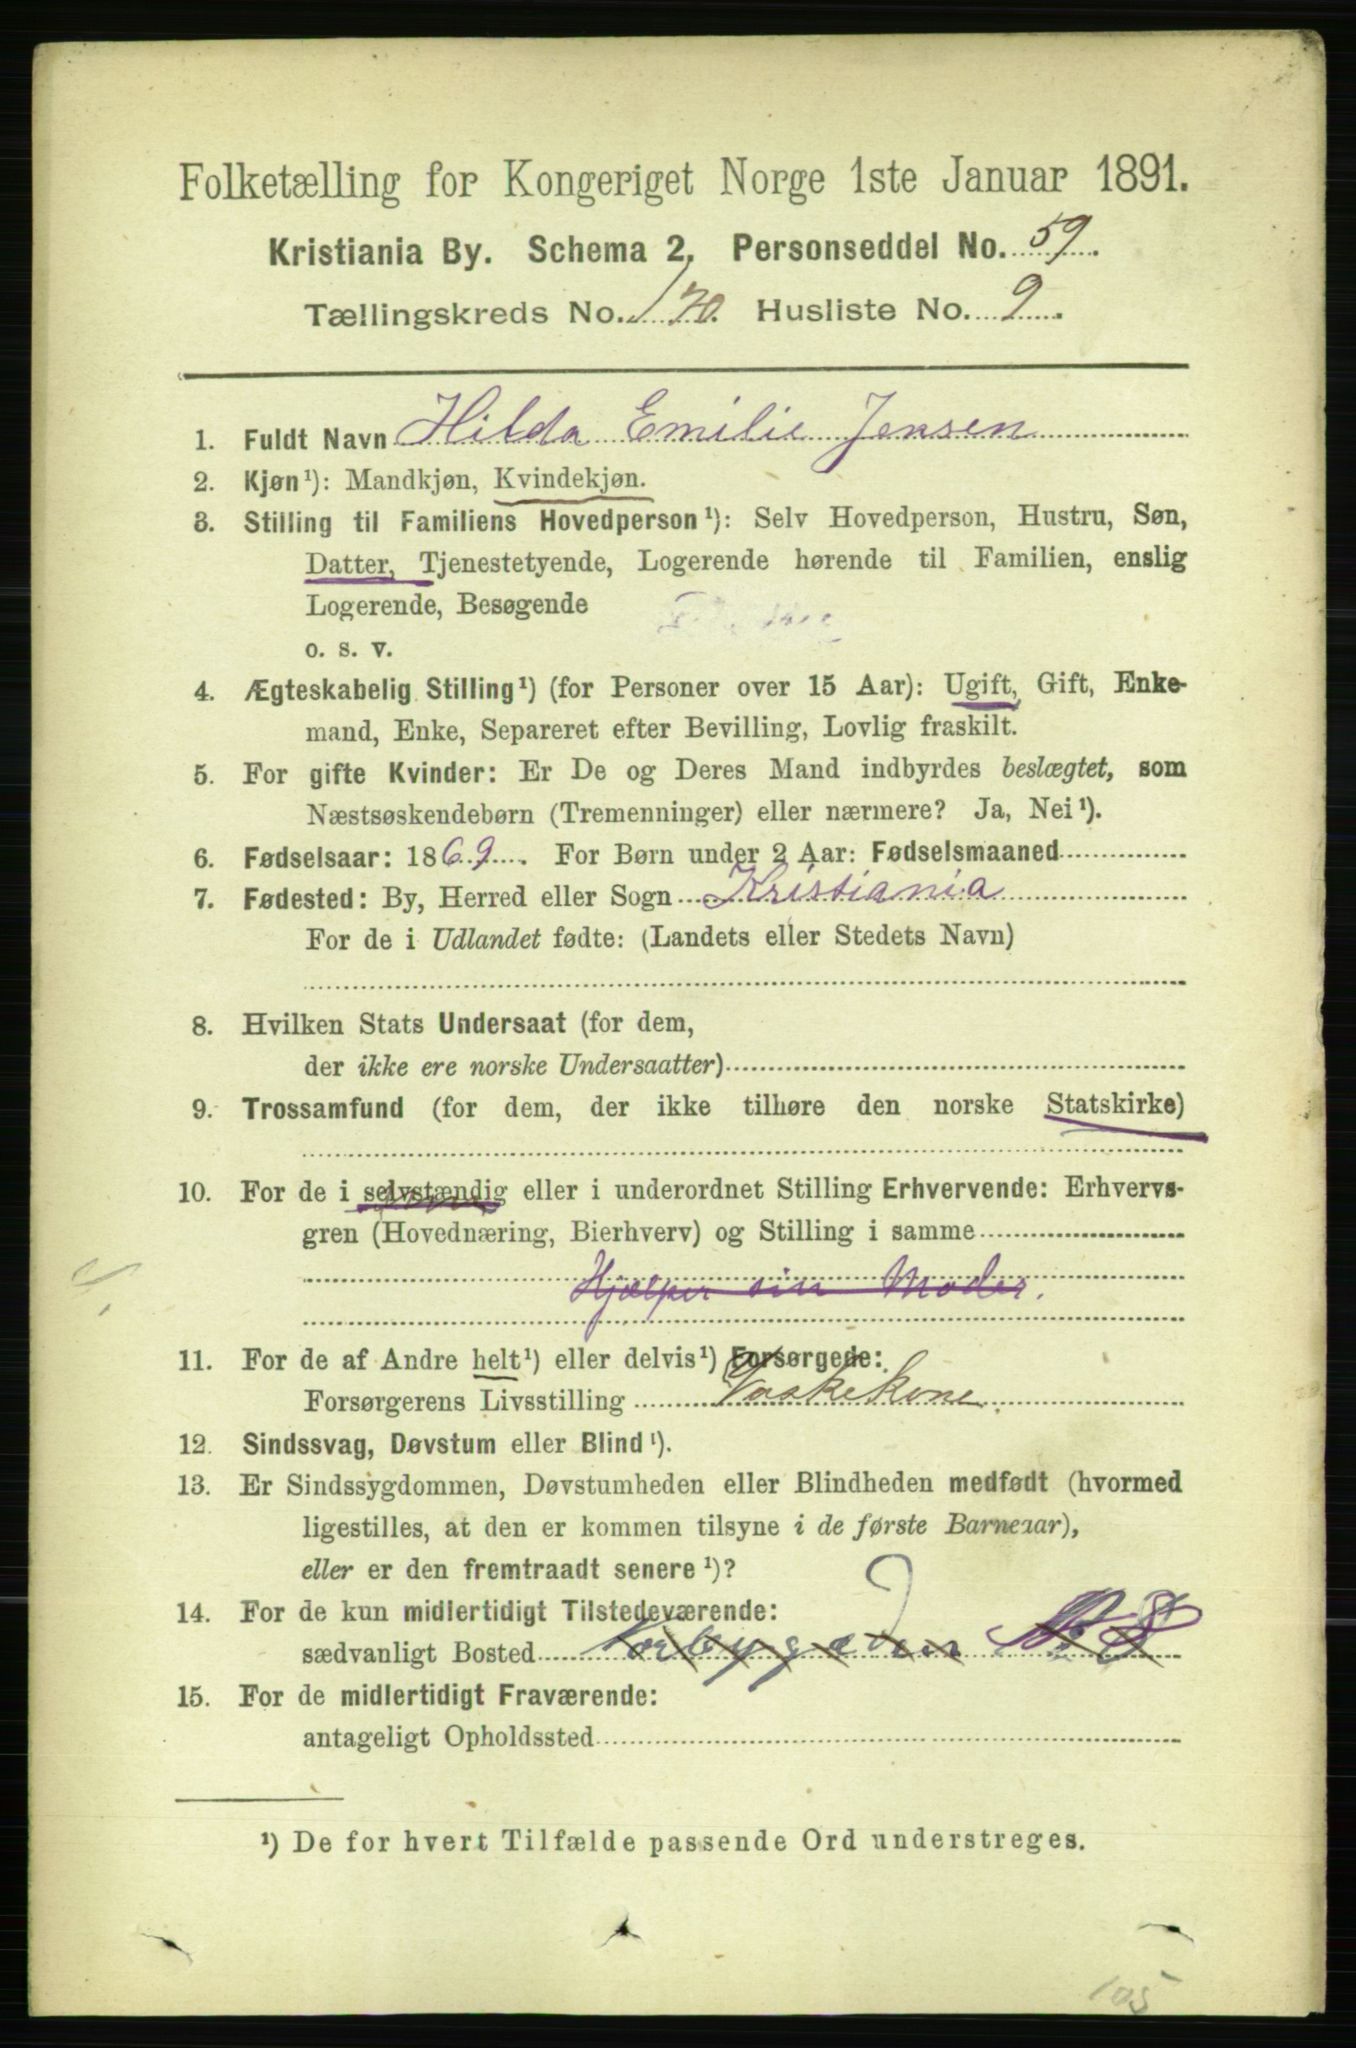 Folketælling for Kongeriget Norge 1ste Januar 1891.
Kristiania By. Schema 2. Personseddel No. 59.
Tællingskreds No. 170. Husliste No. 9.
1. Fuldt Navn Hilda Emilie Jensen
2. Kjøn¹): Mandkjøn, Kvindekjøn.
3. Stilling til Familiens Hovedperson¹): Selv Hovedperson, Hustru, Søn,
Datter, Tjenestetyende, Logerende hørende til Familien, enslig
Logerende, Besøgende
o. s. v.
4. Ægteskabelig Stilling¹) (for Personer over 15 Aar): Ugift, Gift, Enke-
mand, Enke, Separeret efter Bevilling, Lovlig fraskilt.
5. For gifte Kvinder: Er De og Deres Mand indbyrdes beslægtet, som
Næstsøskendebørn (Tremenninger) eller nærmere? Ja, Nei¹).
6. Fødselsaar: 1869. For Børn under 2 Aar: Fødselsmaaned
7. Fødested: By, Herred eller Sogn Kristiania
For de i Udlandet fødte: (Landets eller Stedets Navn)
8. Hvilken Stats Undersaat (for dem,
der ikke ere norske Undersaatter)
9. Trossamfund (for dem, der ikke tilhøre den norske Statskirke)
10. For de i selvstændig eller i underordnet Stilling Erhvervende: Erhvervs-
gren (Hovednæring, Bierhverv) og Stilling i samme
Hjælper sin Moder.
11. For de af Andre helt¹) eller delvis¹) Forsørgede:
Forsørgerens Livsstilling Vaskekone.
12. Sindssvag, Døvstum eller Blind¹).
13. Er Sindssygdommen, Døvstumheden eller Blindheden medfødt (hvormed
ligestilles, at den er kommen tilsyne i de første Barneaar),
eller er den fremtraadt senere¹)?
14. For de kun midlertidigt Tilstedeværende:
sædvanligt Bosted
15. For de midlertidigt Fraværende:
antageligt Opholdssted
¹) De for hvert Tilfælde passende Ord understreges.
105